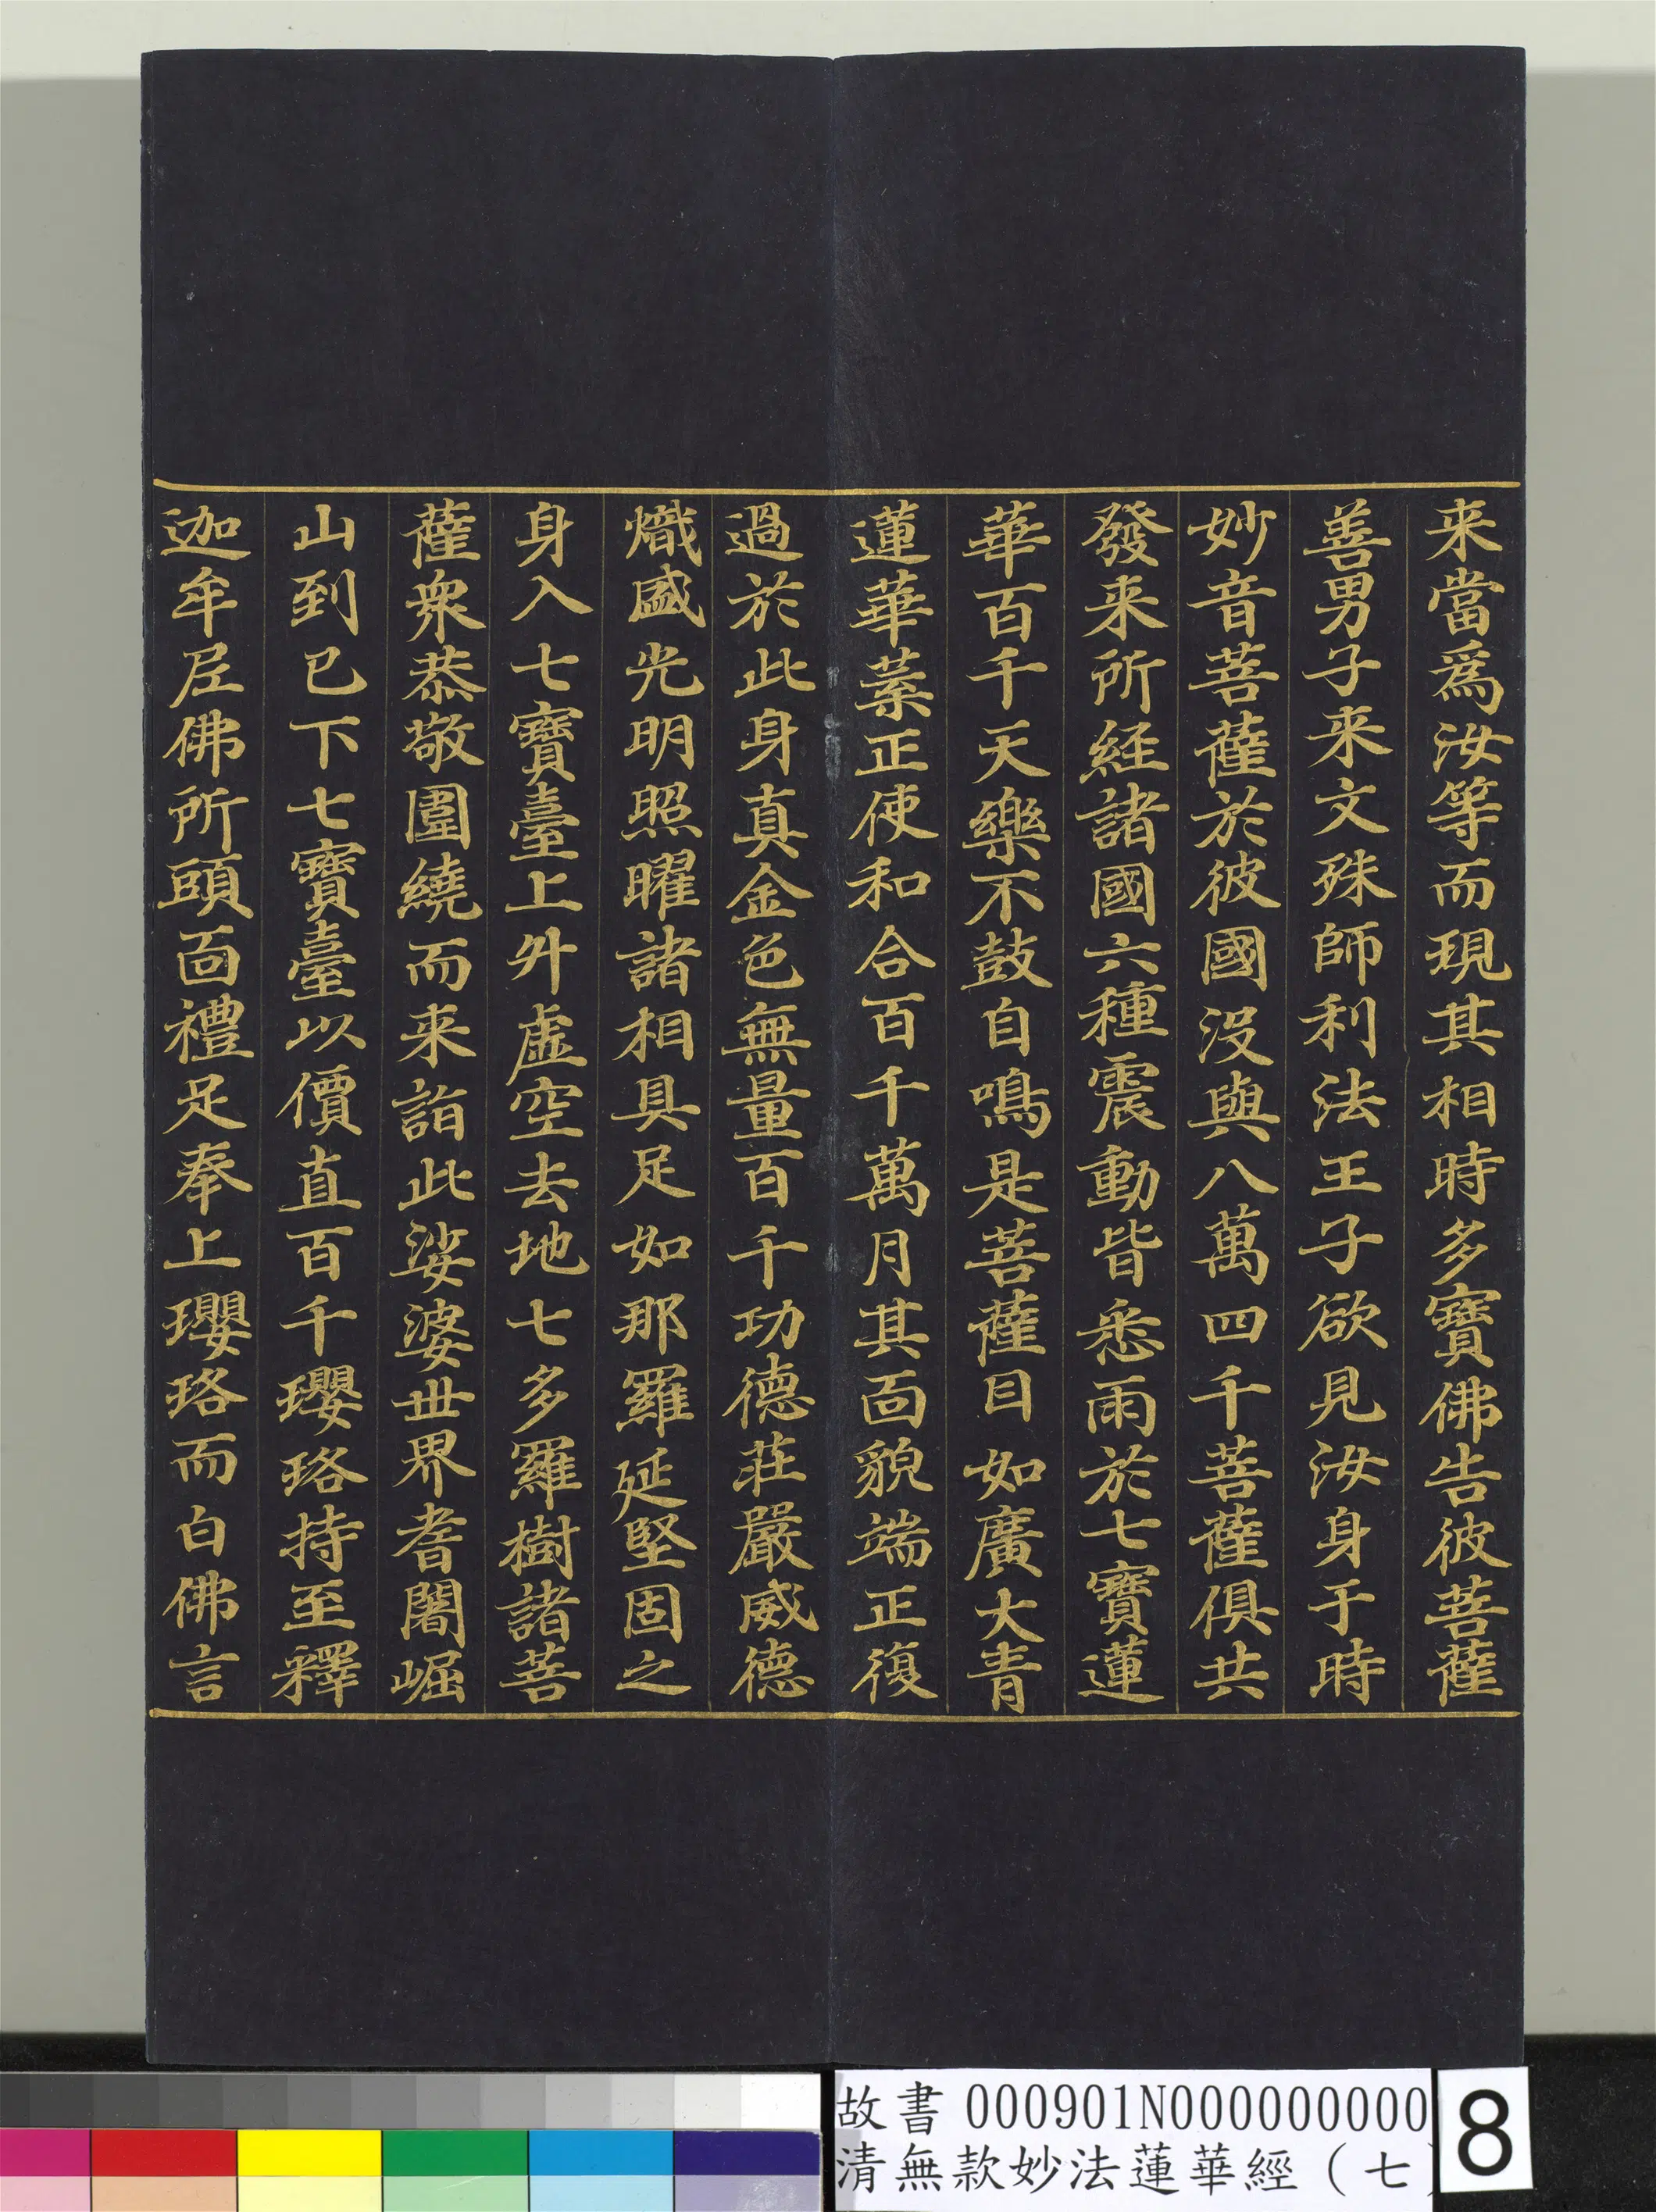 来當爲汝等而現其相時多寶佛告彼菩薩
善男子来文殊師利法王子欲見汝身于時
妙音菩薩於彼國没與八萬四千菩薩俱共
發来所經諸國六種震動皆悉雨於七寶蓮
華百千天樂不鼓自鳴是菩薩目如廣大青
蓮華葉正使和合百千萬月其面貌端正復
過於此身真金色無量百千功德莊嚴威德
熾盛光明照曜諸相具足如那羅延堅固之
身入七寶臺上升虛空去地七多羅樹諸菩
薩衆恭敬圍繞而来詣此娑婆世界耆闍崛
山到已下七寶臺以價直百千瓔珞持至釋
迦牟尼佛所頭面禮足奉上瓔珞而白佛言
故書 000901N000000000
清無款妙法蓮華經（七
8